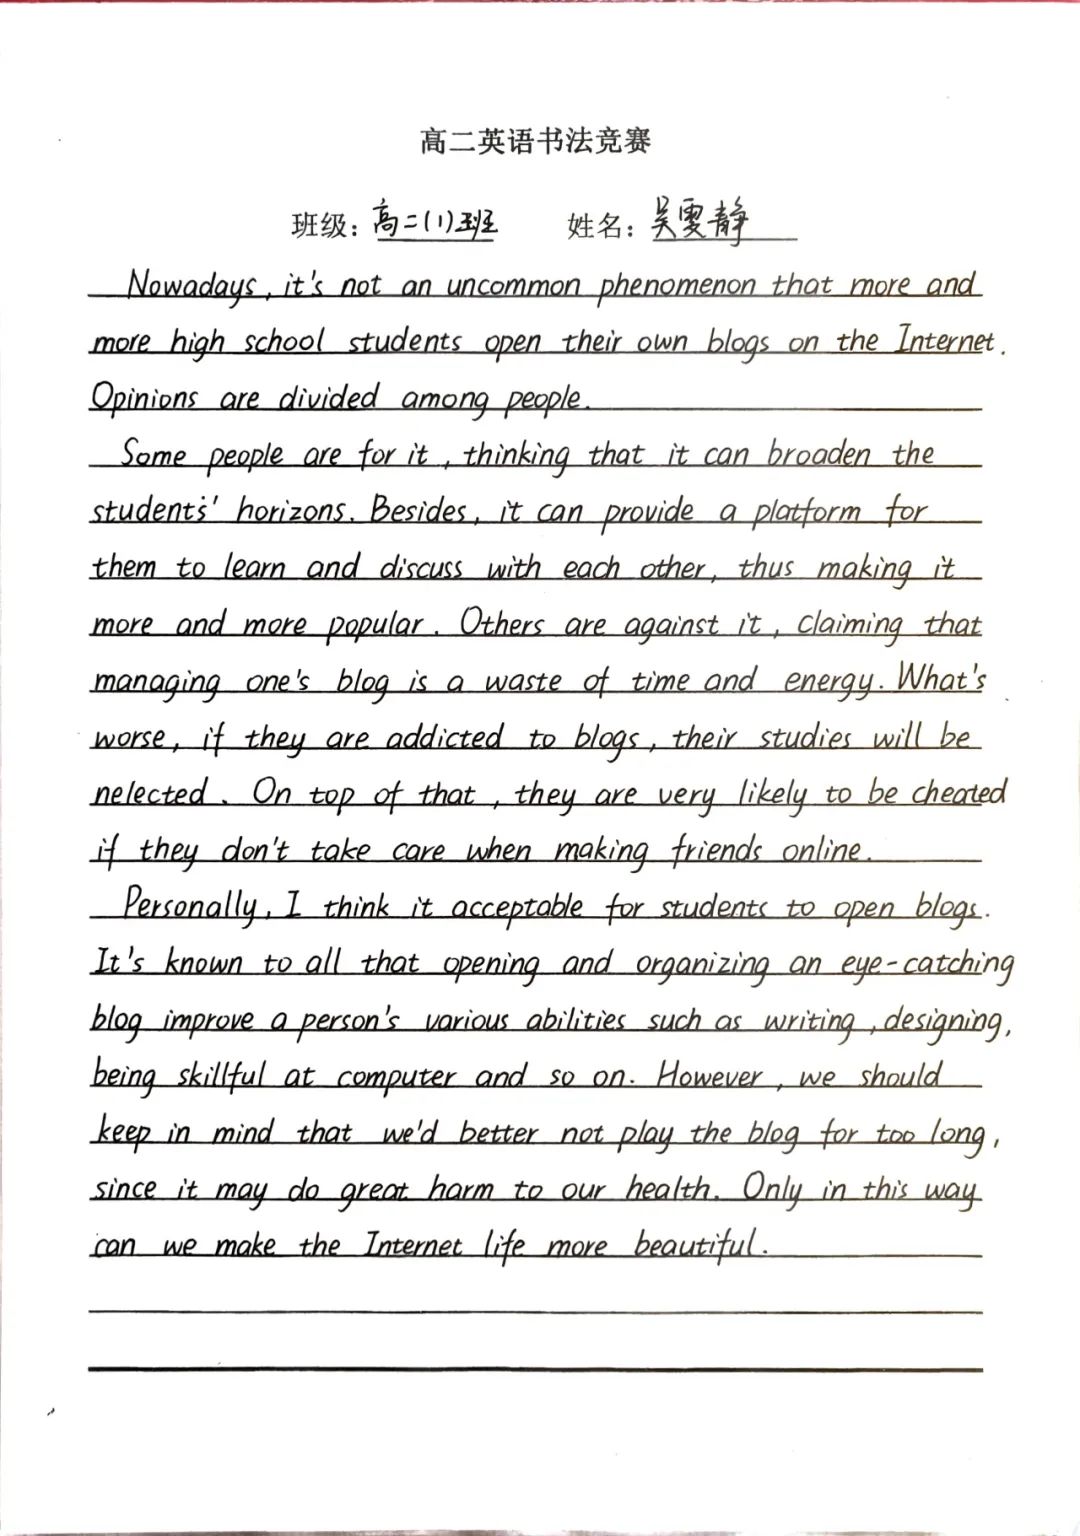 高二英语书法竞赛
班级：高二(1)班 姓名：吴雯静
Nowadays, it's not an uncommon phenomenon that more and
more high school students open their own blogs on the Internet.
Opinions are divided among people.
Some people are for it, thinking that it can broaden the
students' horizons. Besides, it can provide a platform for
them to learn and discuss with each other, thus making it
more and more popular. Others are against it, claiming that
managing one's blog is a waste of time and energy. What's
worse, if they are addicted to blogs, their studies will be
nelected. On top of that, they are very likely to be cheated
if they don't take care when making friends online.
Personally, I think it acceptable for students to open blogs.
It's known to all that opening and organizing an eye-catching
blog improve a person's various abilities such as writing, designing,
being skillful at computer and so on. However, we should
keep in mind that we'd better not play the blog for too long,
since it may do great harm to our health. Only in this way
can we make the Internet life more beautiful.